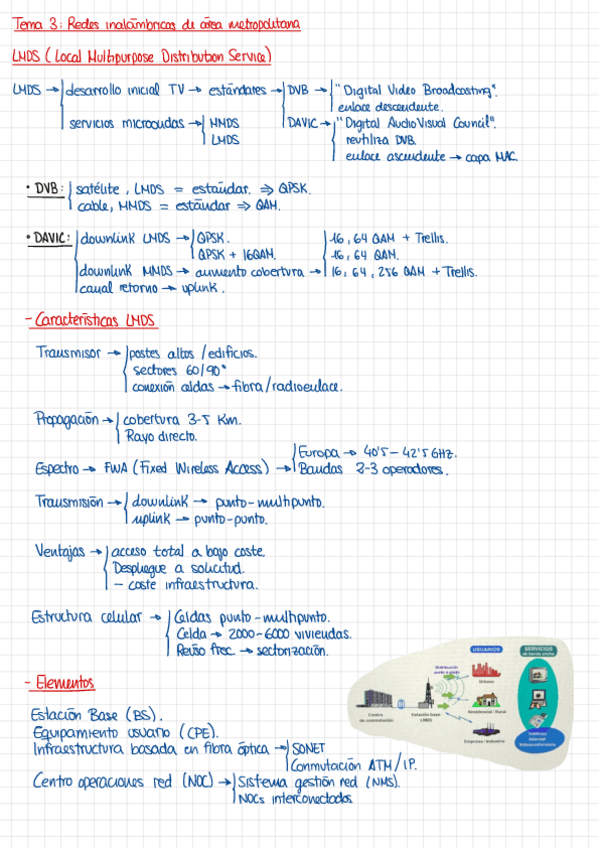 Tema 3: Redes inalámbricas de área metropolitana
LMDS (Local Multipurpose Distribution Service)
LMDS → desarrollo inicial TV → estándares → DVB → "Digital Video Broadcasting".
enlace descendente.
servicios microondas → MMDS DAVIC → "Digital AudioVisual Council".
LMDS reutiliza DVB.
enlace ascendente → capa MAC.
• DVB: satélite, LMDS = estándar ⇒ QPSK.
cable, MMDS = estándar ⇒ QAM.
• DAVIC: downlink LMDS → QPSK. 16, 64 QAM + Trellis.
QPSK + 16QAM. 16, 64 QAM.
downlink MMDS → aumento cobertura → 16, 64, 256 QAM + Trellis.
canal retorno → uplink.
- Características LMDS
Transmisor → postes altos/edificios.
sectores 60/90°
conexión celdas → fibra/radioenlace.
Propagación → cobertura 3-5 Km.
Rayo directo.
Europa → 40'5 - 42'5 GHz.
Espectro → FWA (Fixed Wireless Access) → Bandas 2-3 operadores.
Transmisión → downlink → punto-multipunto.
uplink → punto-punto.
Ventajas → acceso total a bajo coste.
Despliegue a solicitud.
- coste infraestructura.
Estructura celular → Celdas punto-multipunto.
Celda → 2000-6000 viviendas.
Reúso frec. → sectorización.
- Elementos
Estación Base (BS).
Equipamiento usuario (CPE).
Infraestructura basada en fibra óptica → SONET
Conmutación ATM/IP.
Centro operaciones red (NOC) → Sistema gestión red (NMS).
NOCs interconectados
USUARIOS
SERVICIOS
de banda ancha
Distribución
Urbano
Residencial / Rural
Empresa / Industria
Centro
de conmutación
Estación base
LMDS
Teléfono
Internet
Videoconferencia